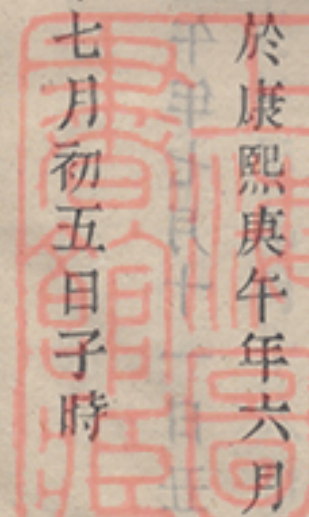 於康熙庚午年六月
七月初五日子時